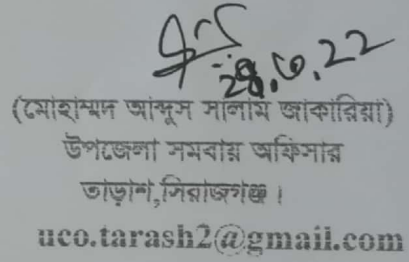 28.৬.22
(মোহাম্মদ আব্দুস সালাম জাকারিয়া)
উপজেলা সমবায় অফিসার
তাড়াশ,সিরাজগঞ্জ।
uco.tarash2@gmail.com